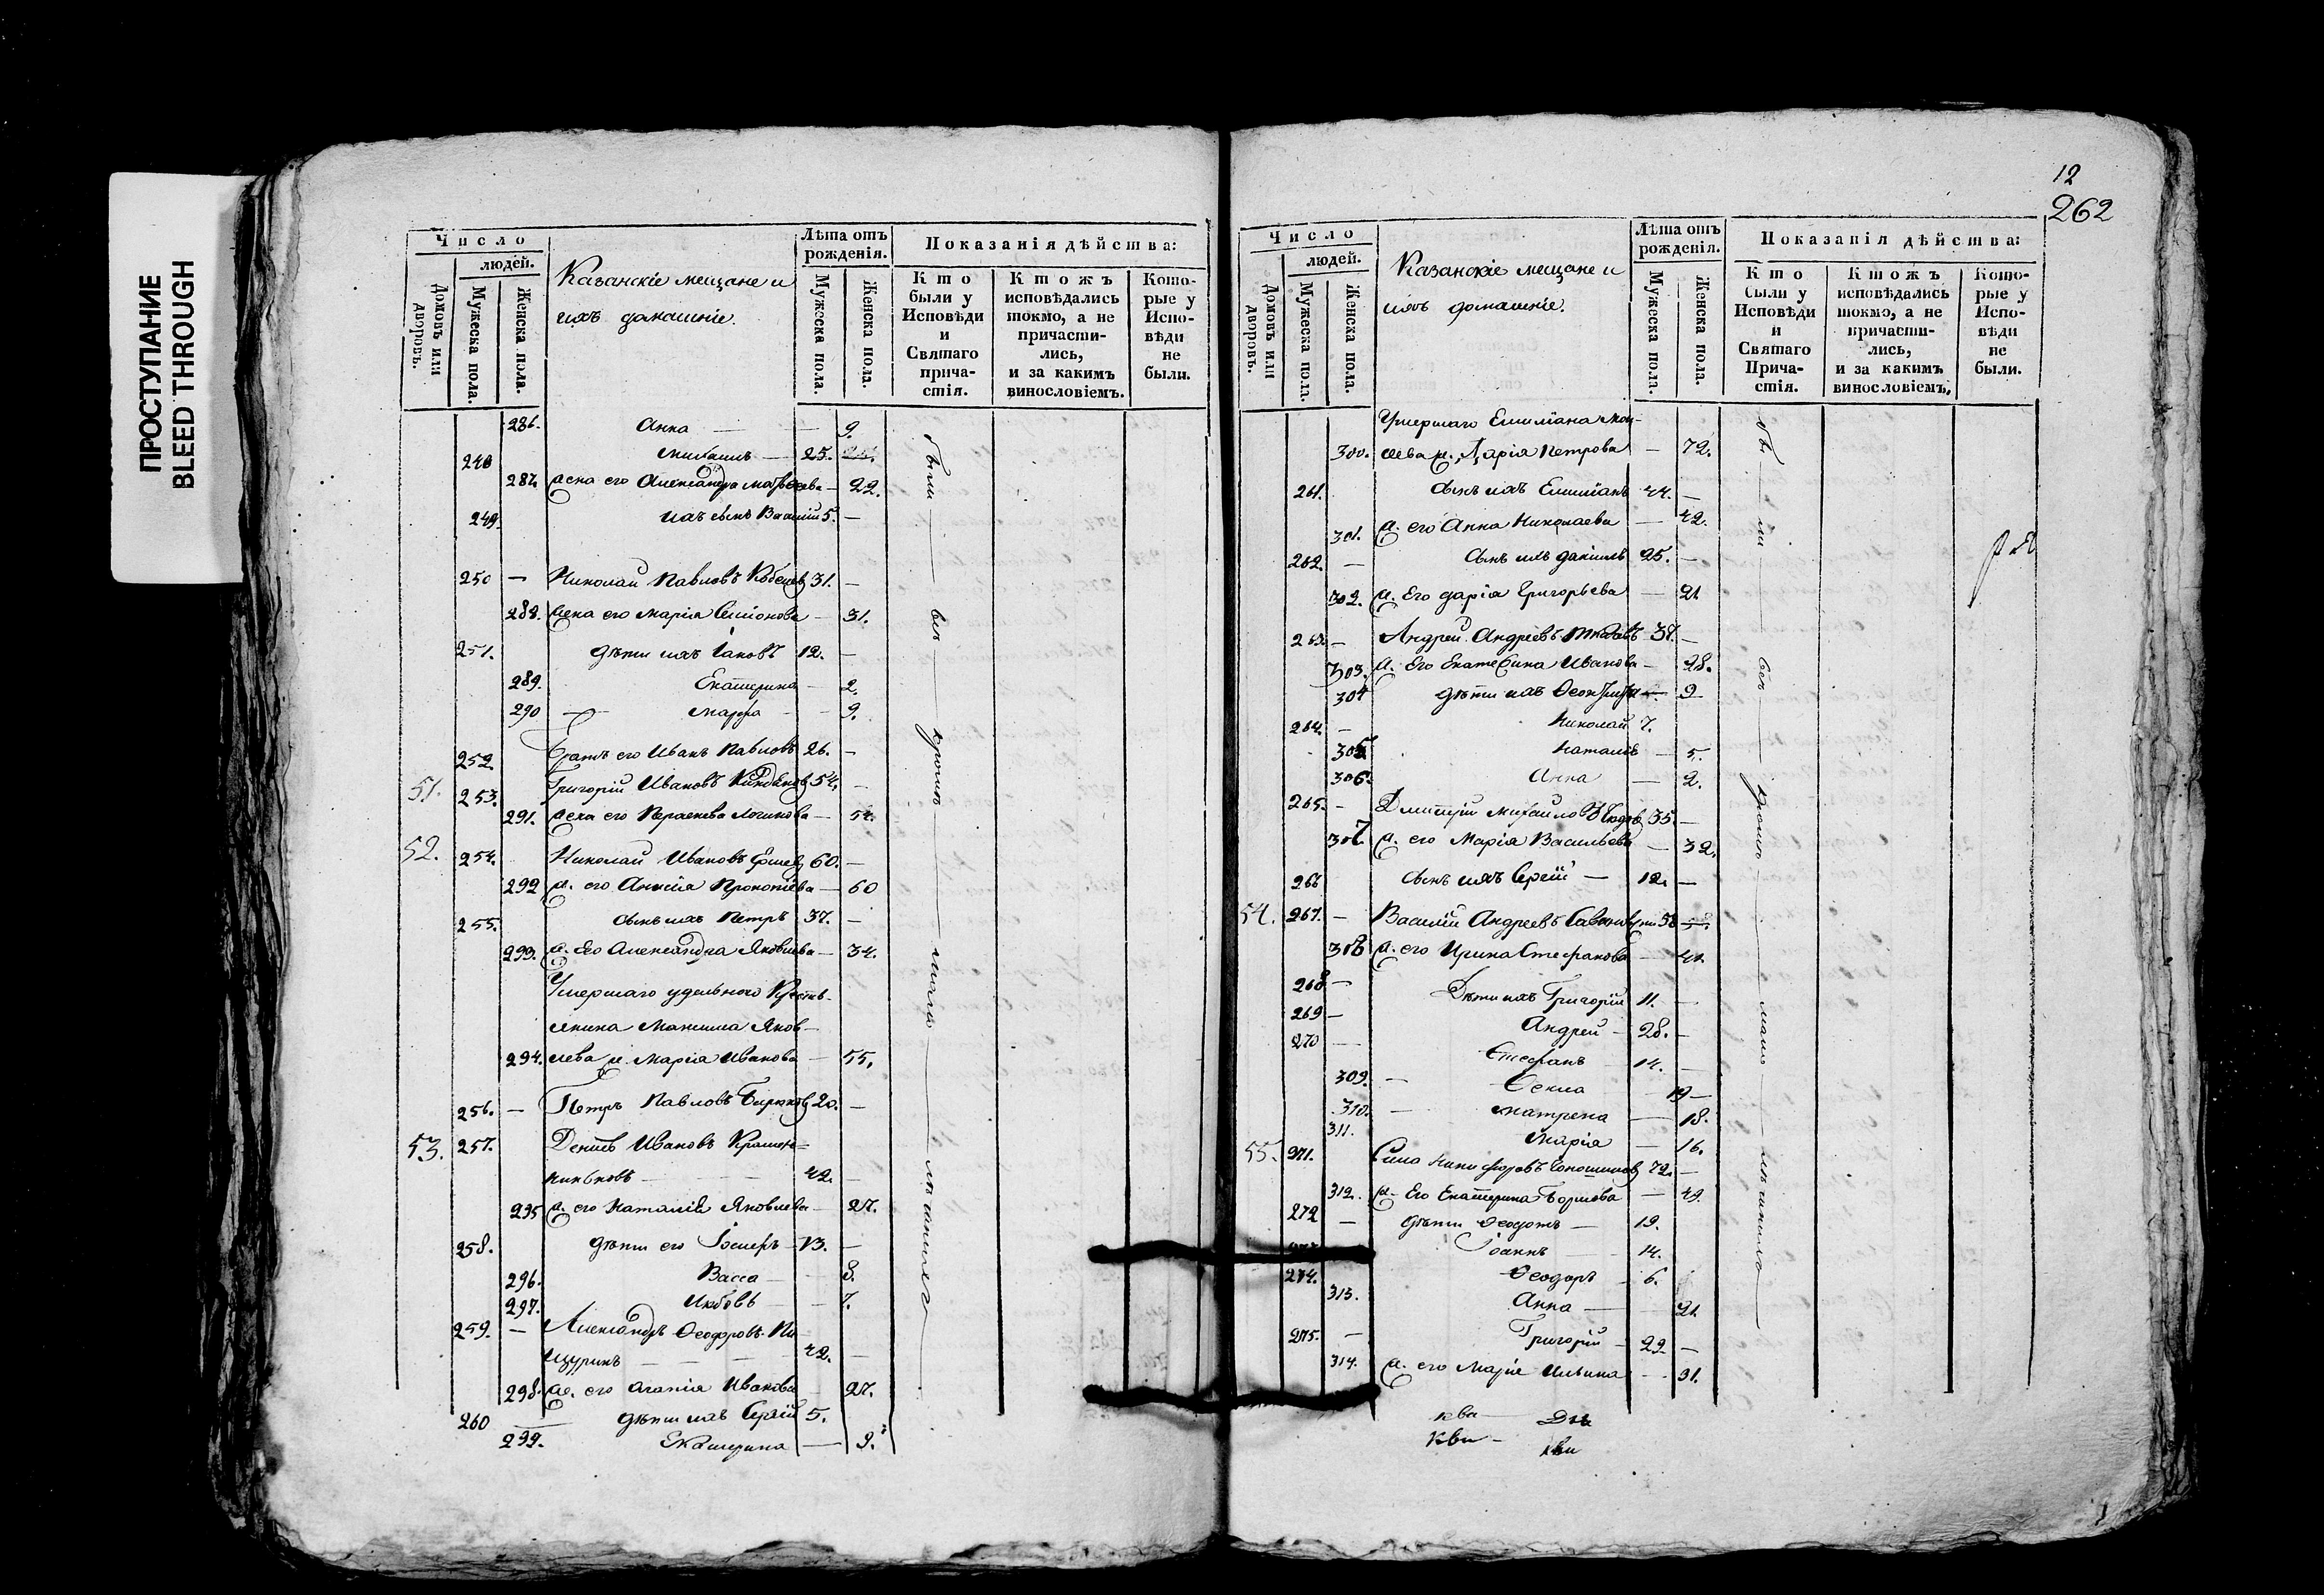 ПРОСТУПАНИЕ
BLEED THROUGH
Число
людей.
Домовъ или дворовъ.
Мужеска пола.
Женска пола.
Казанскіе мещане и
ихъ домашніе.
Лѣта отъ рожденія.
Мужеска пола.
Женска пола.
Показанія дѣйства:
Кто были у Исповѣди и Святаго причастія.
Ктожъ исповѣдались токмо, а не причастились, и за какимъ винословіемъ.
Которые у Исповѣди не были.
286. Анна — — 9.
248 Михаилъ — 25.
287. жена его Александра Матвѣева — 22.
249. ихъ сынъ Василій 5. —
250 — Николай Павловъ 31. —
288. жена его Марія Симіонова — 31.
251. дѣти ихъ Іаковъ 12. —
289. Екатерина — 2.
290 — Марфа — 9.
252. братъ его Иванъ Павловъ 26. —
51. 253. Григорій Ивановъ 54. —
291. жена его Параскева Логинова — 54.
52. 254. Николай Ивановъ 60. —
292 ж. его Анисія Прокопіева — 60
255. сынъ ихъ Петръ 37. —
293. ж. Его Александра Яковлева — 34.
Умершаго удельнаго Крестья-
янина Максима Яков-
294. лева ж. Марія Иванова — 55.
256. — Петръ Павловъ Бирюковъ 20. —
53. 257. Ивановъ Крашен-
никовъ — 42. —
295 ж. его Наталія Яковлева — 27.
258. дѣти его 13. —
296. Васса — 8.
297. Любовь — 7.
259. — Александръ Ѳеодоровъ Пи-
щуринъ — — — 42. —
298. ж. его Агапія Иванова — 27.
260 — дѣти ихъ Сергій 5.
299. Екатерина — 9.
были — всѣ
12
262
Число
людей.
Домовъ или дворовъ.
Мужеска пола.
Женска пола.
Казанскіе мещане и
ихъ домашніе.
Лѣта отъ рожденія.
Мужеска пола.
Женска пола.
Показанія дѣйства:
Кто были у Исповѣди и Святаго Причастія.
Ктожъ исповѣдались токмо, а не причастились, и за какимъ винословіемъ.
Которые у Исповѣди не были.
Умершаго Емиліана
300. ж. Дарія Петрова — 72.
261. сынъ ихъ Емиліанъ 44. —
301. ж. его Анна Николаева — 42.
262. — сынъ ихъ Даніилъ 25. —
302. ж. Его Дарія Григорьева — 21
263. — Андрей Андреевъ 37. —
303. ж. Его Екатерина Иванова — 28.
304 дѣти ихъ — 9
264. — Николай 7.
305. Наталія — 5.
306. Анна — 2.
265. — Дмитрій Михайловъ 35. —
307. ж. его Марія Васильева — 32.
266 сынъ ихъ Сергій — 12. —
54. 267. — Василій Андреевъ 58
308 ж. его Ирина Стефанова — 41.
268. — Дѣти ихъ Григорій 11. —
269 — Андрей — 28. —
270 — Стефанъ 14. —
309. — Ѳекла — 19 —
310. — Матрена — 18.
311. Марія — 16.
55. 271. Сила Никифоровъ 72. —
312. ж. Его Екатерина — 49.
272 — дѣти Ѳеодотъ — 19.
Іоаннъ — 14.
274. Ѳеодоръ — 6.
313. Анна — 21.
275. — Григорій — 22. —
314. ж. его Марія Ильина — 31.